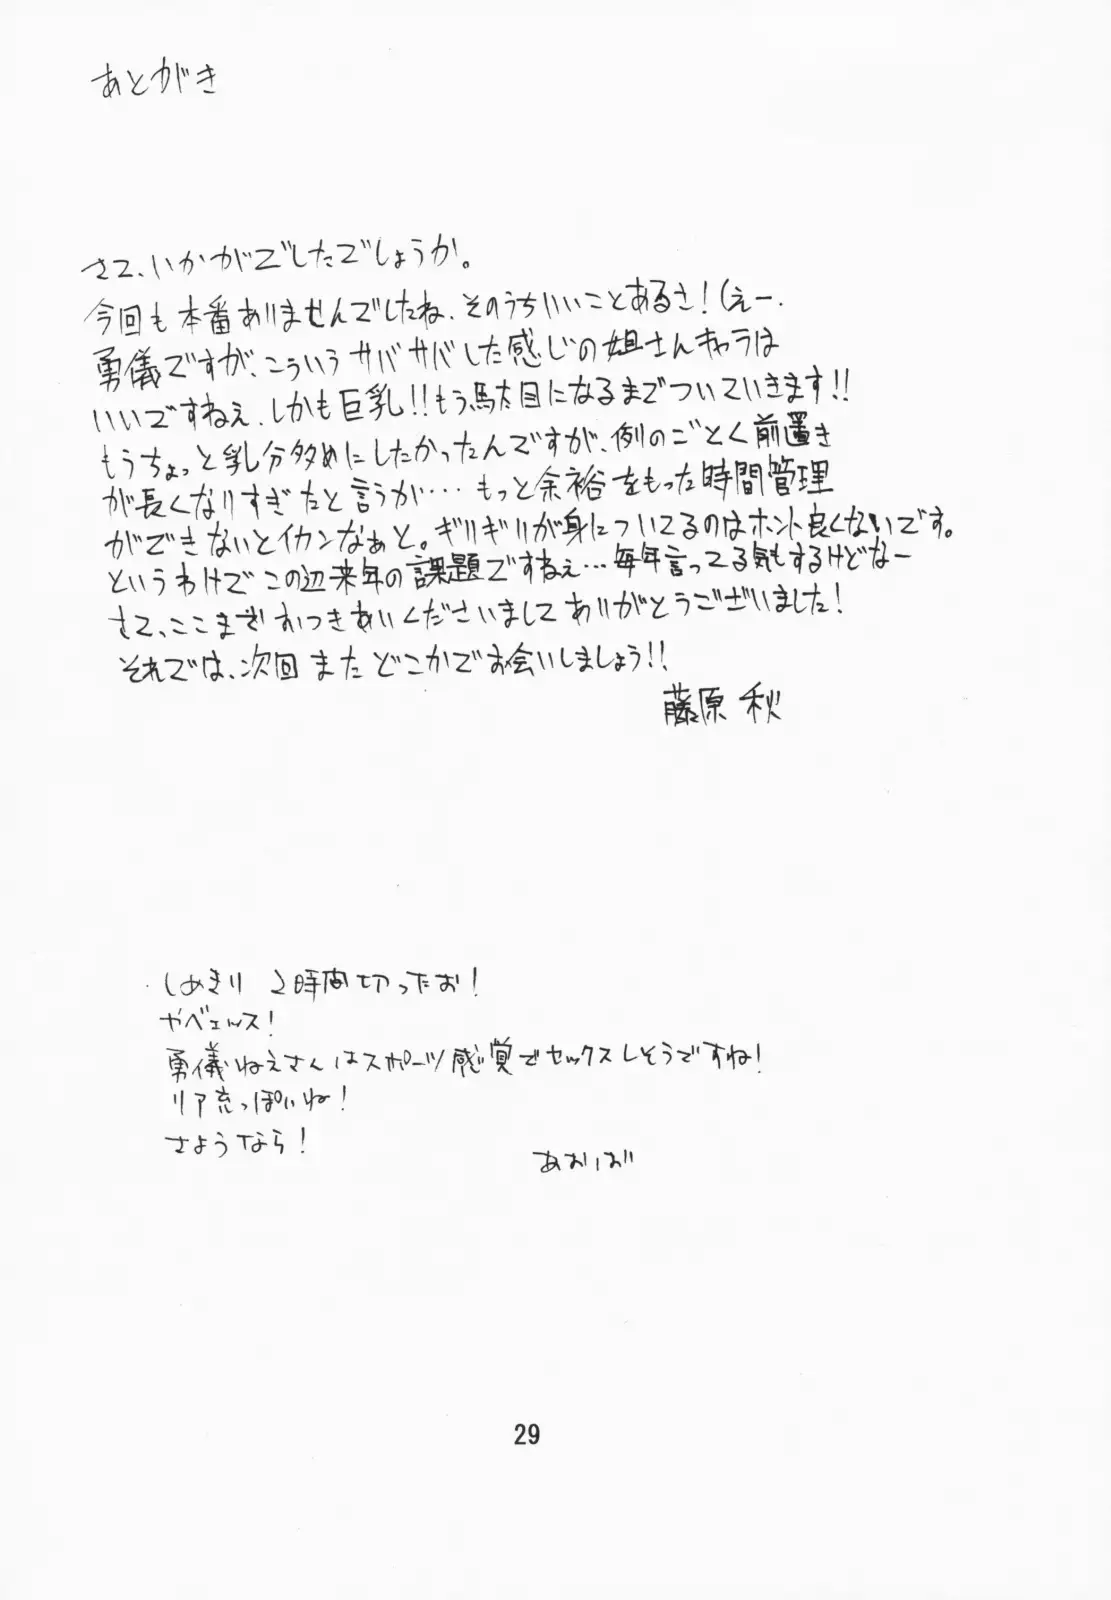 あとがき
さて、いかがでしたでしょうか。
今回も本番ありませんでしたね、そのうちいいことあるさ!(えー.
勇儀ですが、こういうサバサバした感じの姐さんキャラは
いいですねぇ、しかも巨乳!!もう駄目になるまでついていきます!!
もうちょっと乳分多めにしたかったんですが、例のごとく前置き
が長くなりすぎたと言うか…もっと余裕をもった時間管理
ができないとイカンなぁと。ギリギリが身についてるのはホント良くないです。
というわけでこの辺来年の課題ですねぇ…毎年言ってる気もするけどなー
さて、ここまでおつきあいくださいましてありがとうございました!
それでは、次回またどこかでお会いしましょう!!
藤原 秋
しめきり 2時間切ったお!
やべェッス!
勇儀ねえさんはスポーツ感覚でセックスしそうですね!
リア充っぽいね!
さようなら!
あおいば
29